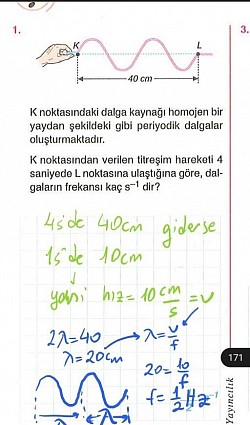 1.
3.
K
L
40 cm
K noktasındaki dalga kaynağı homojen bir
yaydan şekildeki gibi periyodik dalgalar
oluşturmaktadır.
K noktasından verilen titreşim hareketi 4
saniyede L noktasına ulaştığına göre, dal-
gaların frekansı kaç s⁻¹ dir?
4s'de 40cm giderse
1s'de 10cm
yani hız = 10 cm/s = v
2λ=40 → λ = v/f
λ=20cm
20 = 10/f
f = 1/2 Hz
λ
λ
171
Yayıncılık